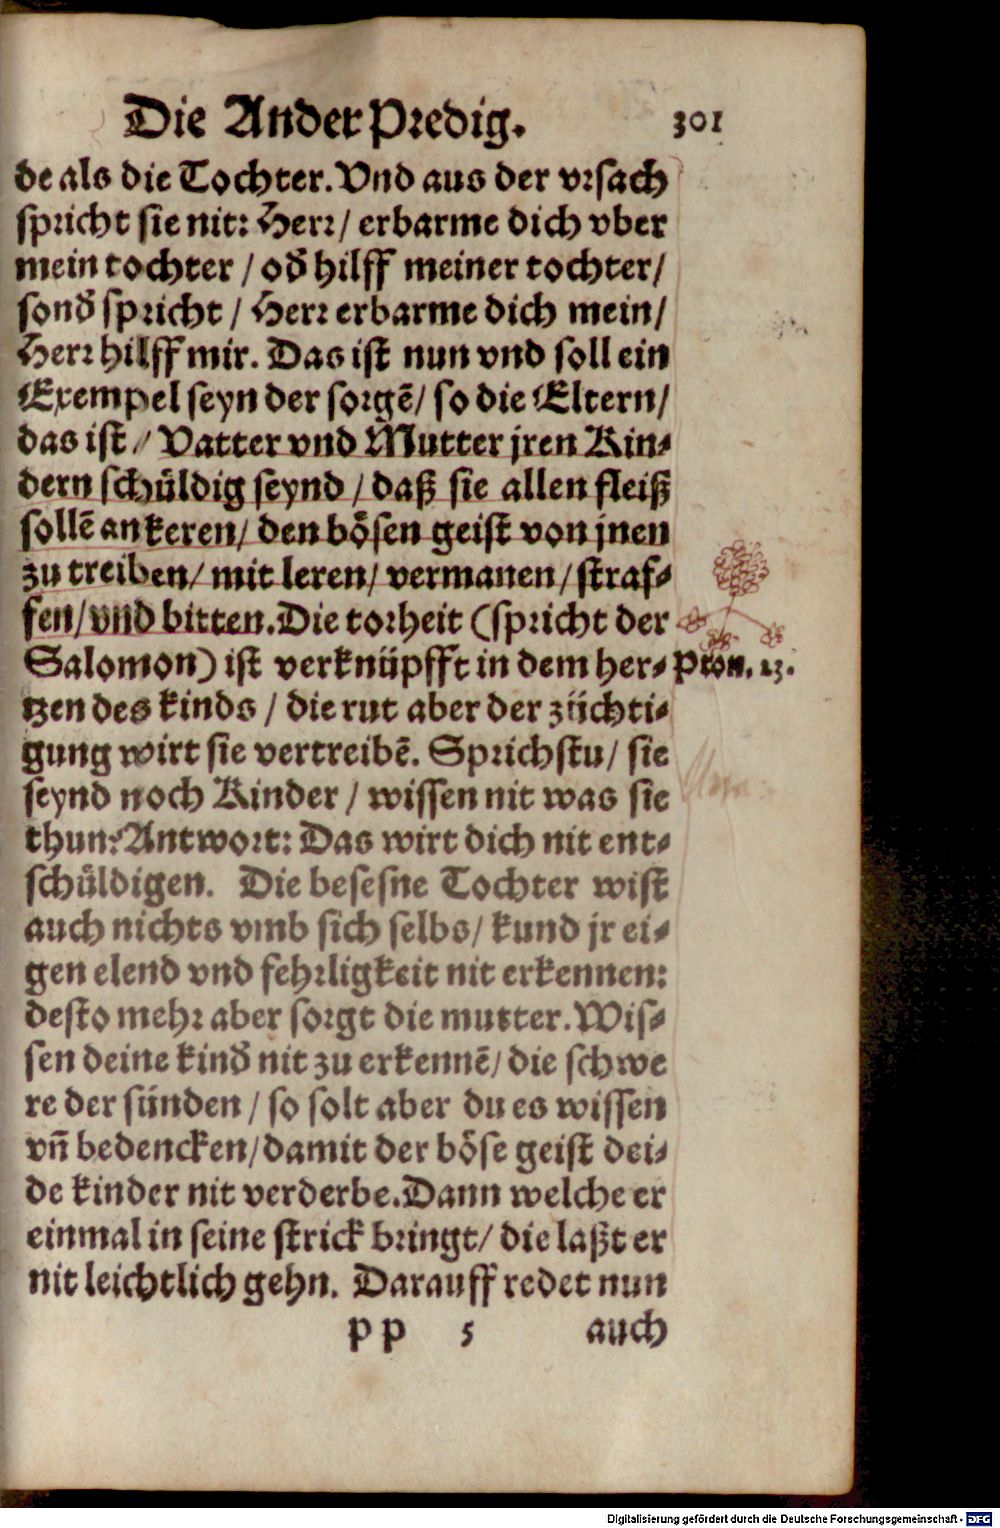 Die Ander Predig. 301
de als die Tochter. Vnd aus der vrsach
spricht sie nit: Herr / erbarme dich vber
mein tochter / od̄ hilff meiner tochter /
sond̄ spricht / Herr erbarme dich mein /
Herr hilff mir. Das ist nun vnd soll ein
Exempel seyn der sorgē / so die Eltern /
das ist / Vatter vnd Mutter jren Kin⸗
dern schüldig seynd / daß sie allen fleiß
sollē ankeren / den bösen geist von jnen
zu treiben / mit leren / vermanen / straf⸗
fen / vnd bitten. Die torheit (spricht der
Salomon) ist verknüpfft in dem her⸗
Prou. 23.
tzen des kinds / die rut aber der züchti⸗
gung wirt sie vertreibē. Sprichstu / sie
seynd noch Kinder / wissen nit was sie
thun? Antwort: Das wirt dich nit ent⸗
schüldigen. Die besesne Tochter wist
auch nichts vmb sich selbs / kund jr ei⸗
gen elend vnd fehrligkeit nit erkennen:
desto mehr aber sorgt die mutter. Wis⸗
sen deine kind̄ nit zu erkennē / die schwe
re der sünden / so solt aber du es wissen
vn̄ bedencken / damit der böse geist dei⸗
de kinder nit verderbe. Dann welche er
einmal in seine strick bringt / die laßt er
nit leichtlich gehn. Darauff redet nun
pp 5 auch
Digitalisierung gefördert durch die Deutsche Forschungsgemeinschaft - DFG